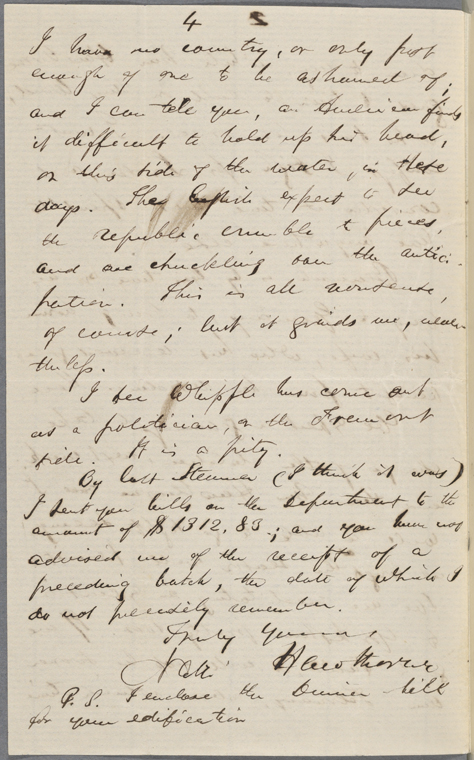 4
I have no country, or only just
enough of one to be ashamed of;
and I can tell you, an American finds
it difficult to hold up his head,
on this side of the water, in these
days. The English expect to see
the republic crumble to pieces,
and are chuckling over the antici-
pation. This is all nonsense,
of course; but it grinds me, never-
theless.
I see Whipple has come out
as a politician, on the Fremont
side. It is a pity.
By last Steamer (I think it was)
I sent you bills on the Department to the
amount of $1312,83; and you have not
advised me of the receipt of a
preceding batch, the date of which I
do not precisely remember.
Truly yours,
Nath Hawthorne
P.S. I enclose the Dinner bill
for your edification